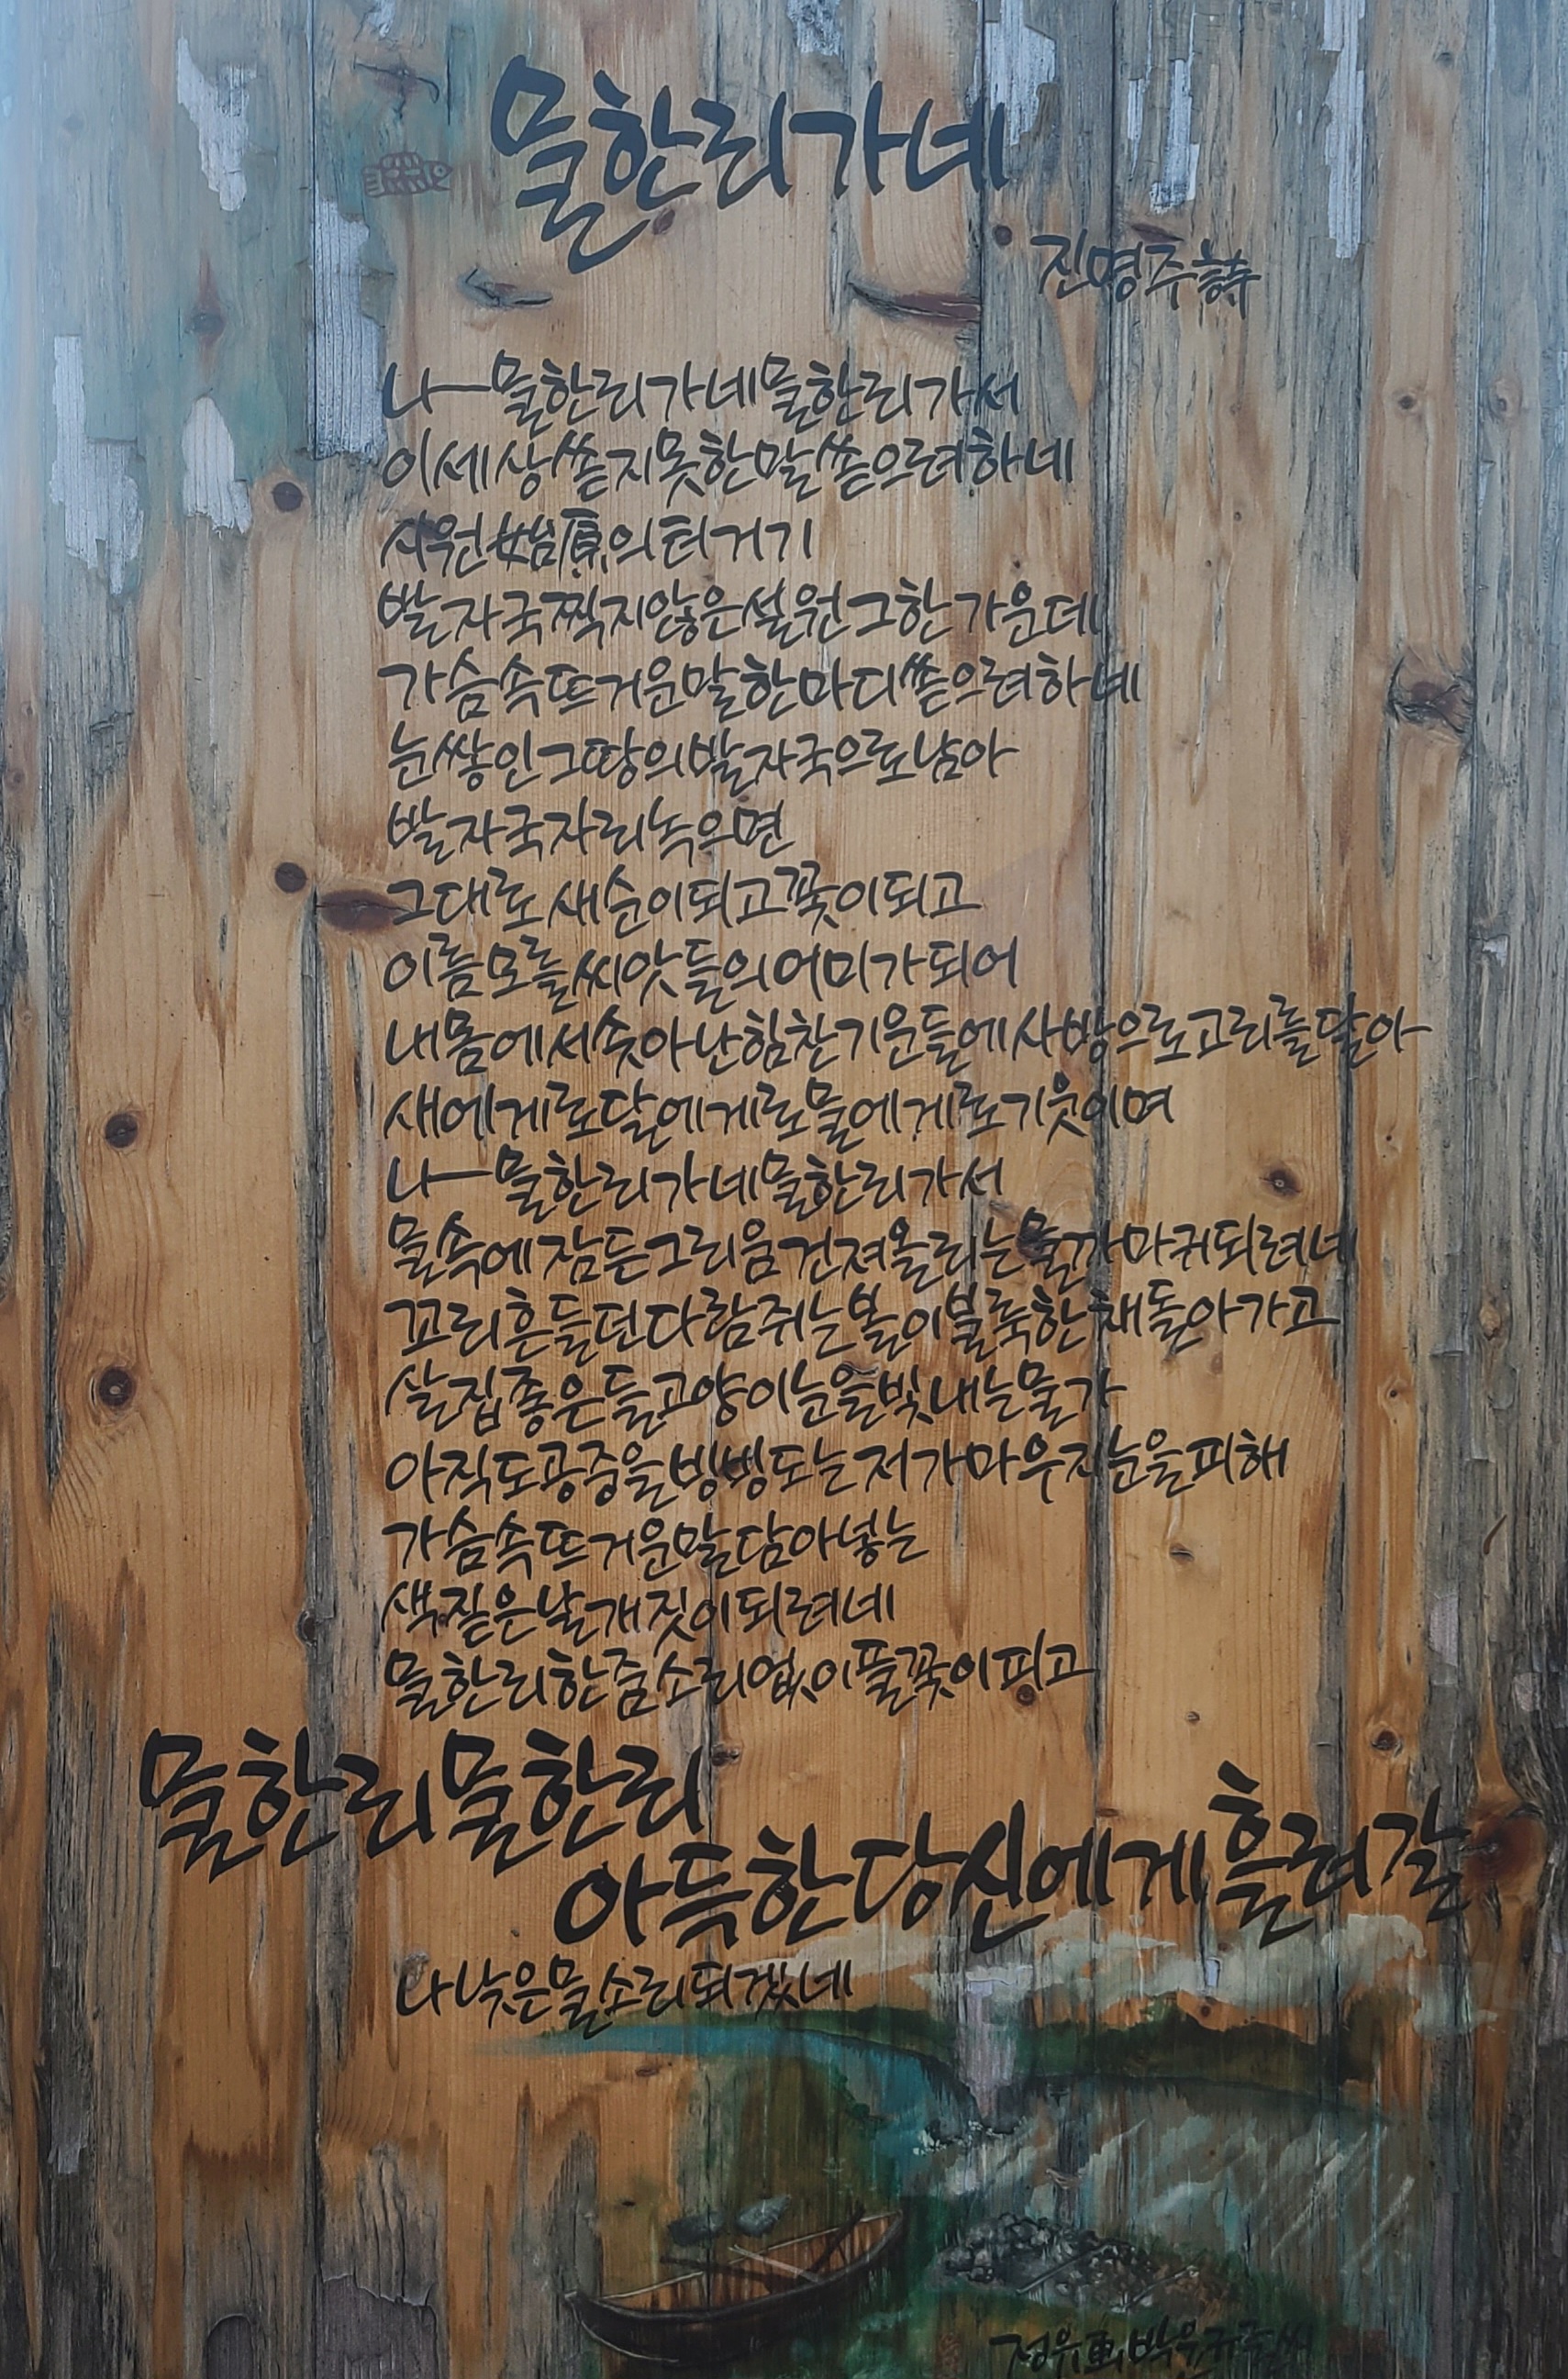 물한리 가네
진명주 詩
나— 물한리 가네 물한리 가서
이 세상 쏟지 못한 말 쏟으려 하네
시원始原의 터 거기
발자국 찍지 않은 설원 그 한가운데
가슴 속 뜨거운 말 한마디 쏟으려 하네
눈 쌓인 그 땅의 발자국으로 남아
발자국 자리 녹으면
그대로 새순이 되고 꽃이 되고
이름 모를 씨앗들의 어미가 되어
내 몸에서 솟아난 힘찬 기운들에 사방으로 고리를 달아
새에게로 달에게로 물에게로 기웃이며
나— 물한리 가네 물한리 가서
물 속에 잠든 그리움 건져 올리는 물까마귀 되려네
꼬리 흔들던 다람쥐는 볼이 불룩한 채 돌아가고
살집 좋은 들고양이 눈을 빛내는 물가
아직도 공중을 빙빙 도는 저 가마우지 눈을 피해
가슴 속 뜨거운 말 담아 넣는
색 짙은 날개짓이 되려네
물한리 한 줌 소리 없이 풀꽃이 피고
물한리 물한리
아득한 당신에게 흘러갈
나 낮은 물소리 되겠네